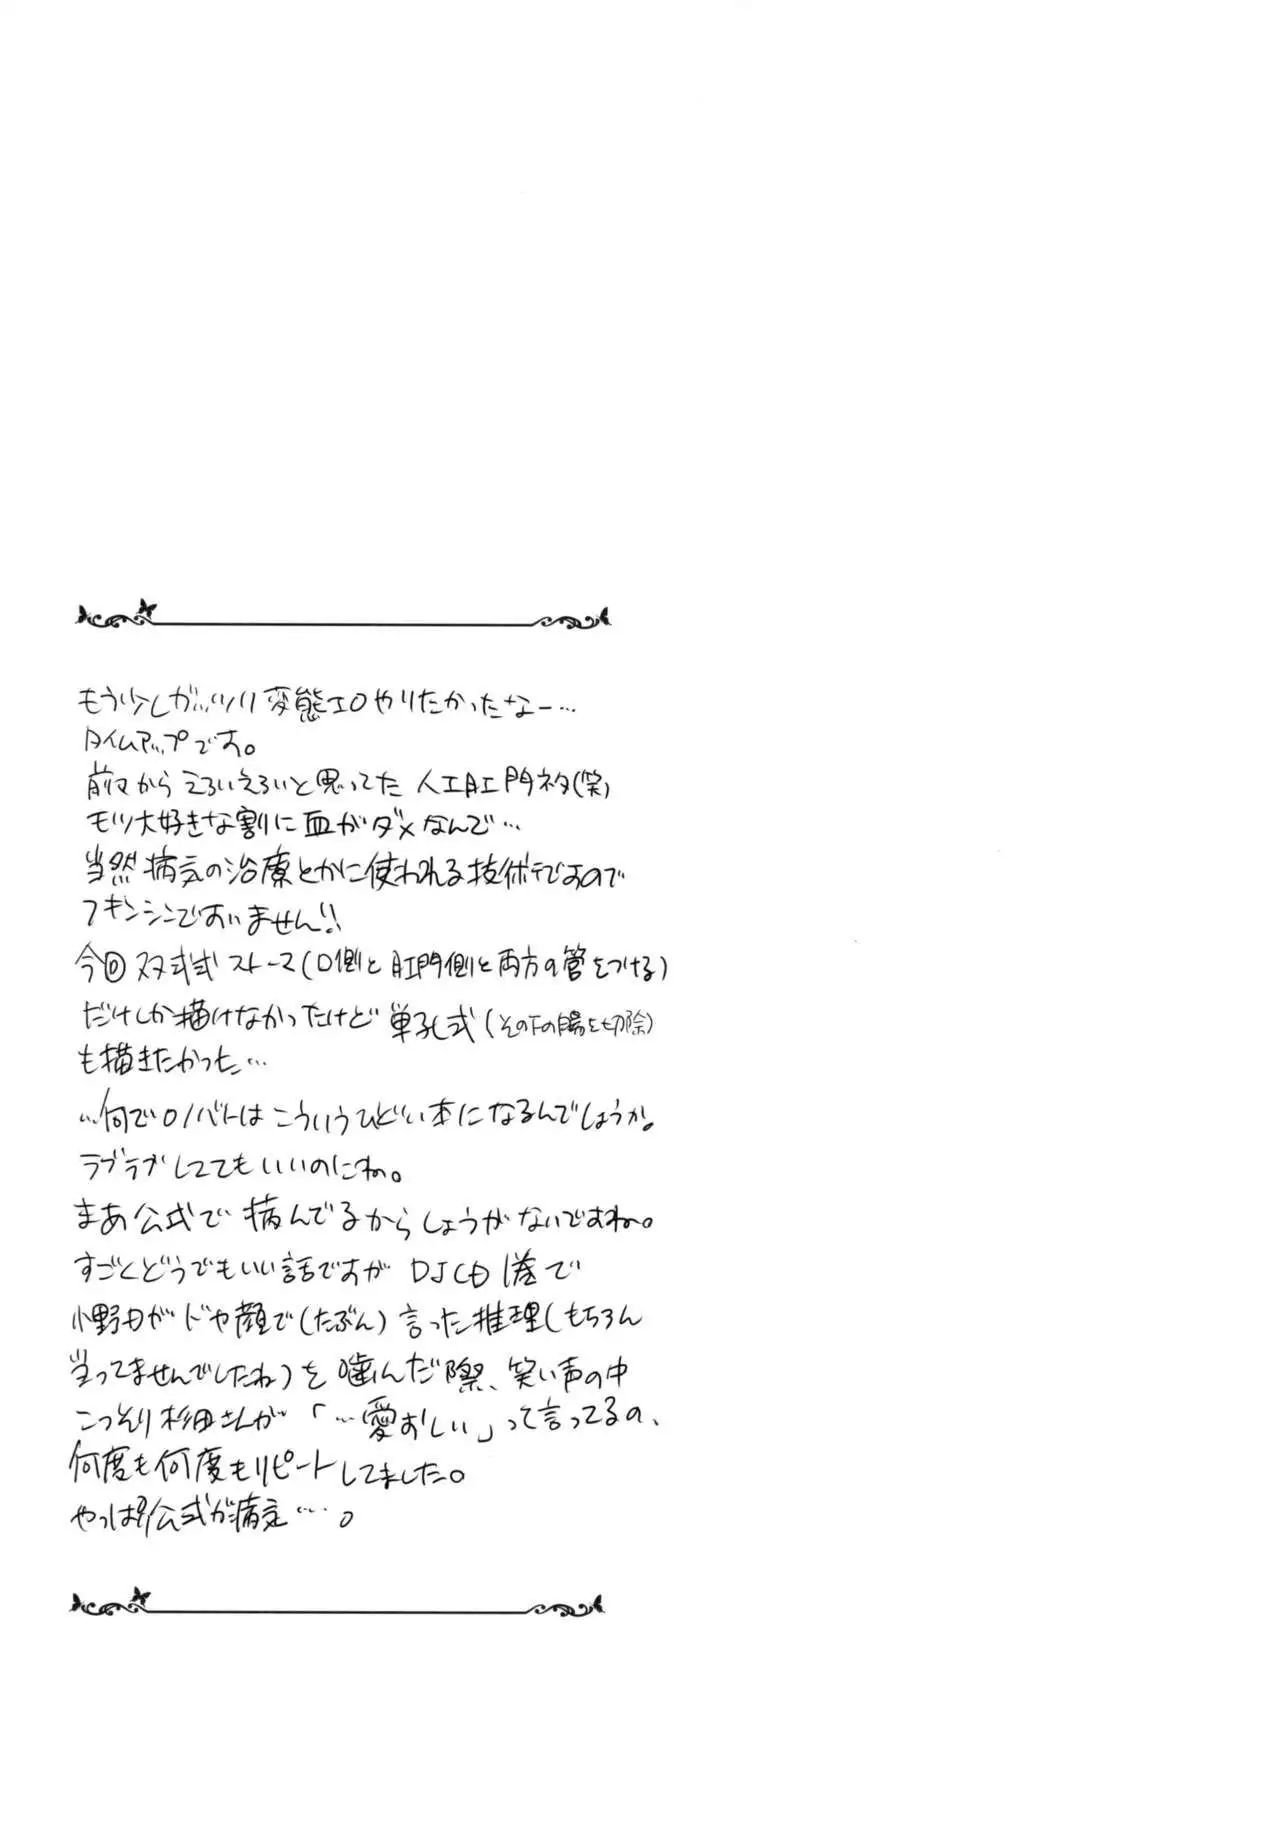 もう少しガッツリ変態エロやりたかったなー…
タイムアップです。
前々からえろいえろいと思ってた人工肛門ネタ(笑)
モツ大好きな割に血がダメなんで…
当然病気の治療とかに使われる技術ですので
フキンシンですいません!!
今回双孔式ストーマ(口側と肛門側と両方の管をつける)
だけしか描けなかったけど単孔式(その下の腸を切除)
も描きたかった…
…何でロノバトはこういうひどい本になるんでしょうか。
ラブラブしててもいいのにね。
まあ公式で病んでるからしょうがないですね。
すごくどうでもいい話ですがDJCD1巻で
小野Dがドヤ顔で(たぶん)言った推理(もちろん
当ってませんでしたね)を噛んだ際、笑い声の中
こっそり杉田さんが「…愛おしい」って言ってるの、
何度も何度もリピートしてました。
やっぱり公式が病気…。